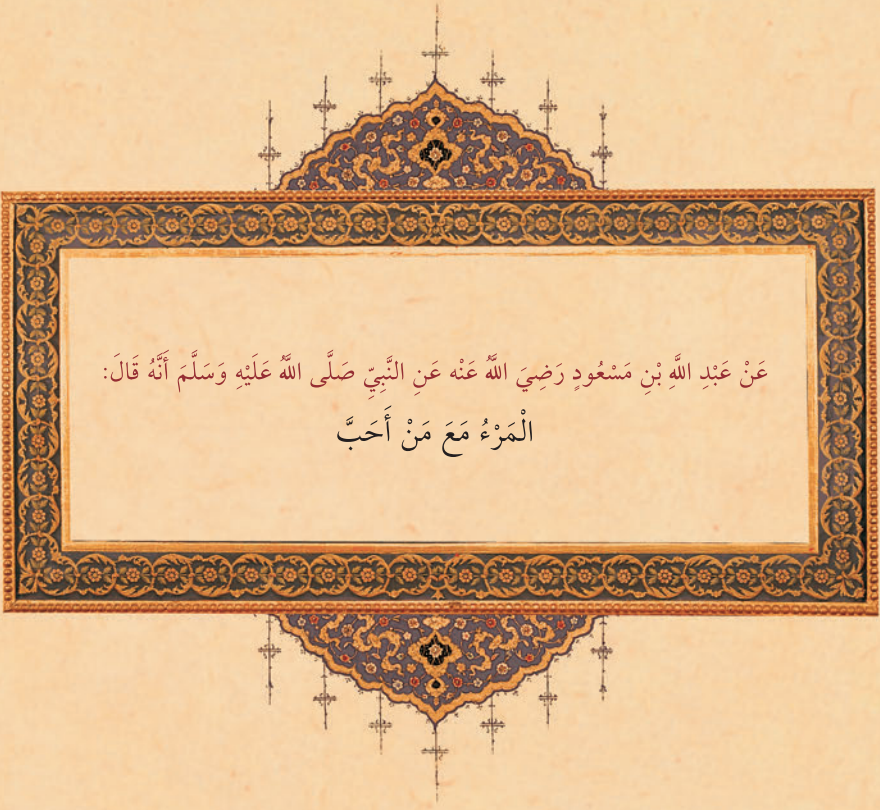 عَنْ عَبْدِ اللَّهِ بْنِ مَسْعُودٍ رَضِيَ اللَّهُ عَنْه عَنِ النَّبِيِّ صَلَّى اللَّهُ عَلَيْهِ وَسَلَّمَ أَنَّهُ قَالَ:
الْمَرْءُ مَعَ مَنْ أَحَبَّ